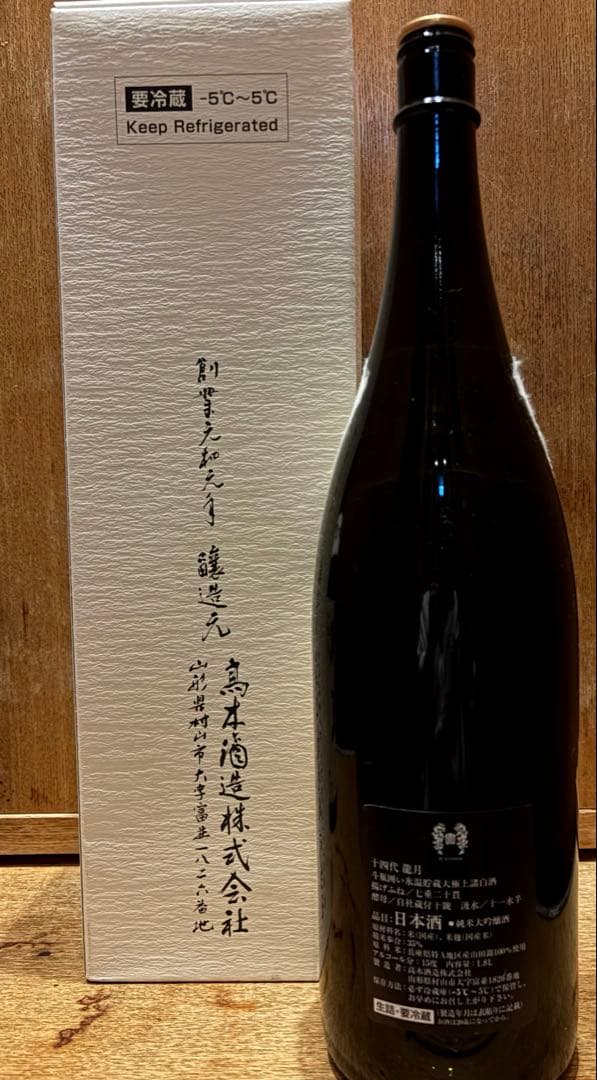 要冷蔵 -5℃~5℃
Keep Refrigerated
創業元和元年 醸造元
高木酒造株式会社
山形県村山市大字富並一八二六番地
十四代 龍月
斗瓶囲い氷温貯蔵大極上諸白酒
揚げふね/七垂二十貫
酵母/自社蔵付十號 汲水/十一水半
品目:日本酒 ●純米大吟醸酒
原材料名:米(国産)、米麹(国産米)
精米歩合:35%
原料米:兵庫県特A地区産山田錦100%使用
アルコール分:15度 内容量:1.8L
製造者:高木酒造株式会社
山形県村山市大字富並1826番地
保存方法:必ず冷蔵庫(-5℃~5℃)で保管し、
お早めにお召し上がり下さい。
生詰・要冷蔵 (製造年月は表貼りに記載)
お酒は20歳になってから。